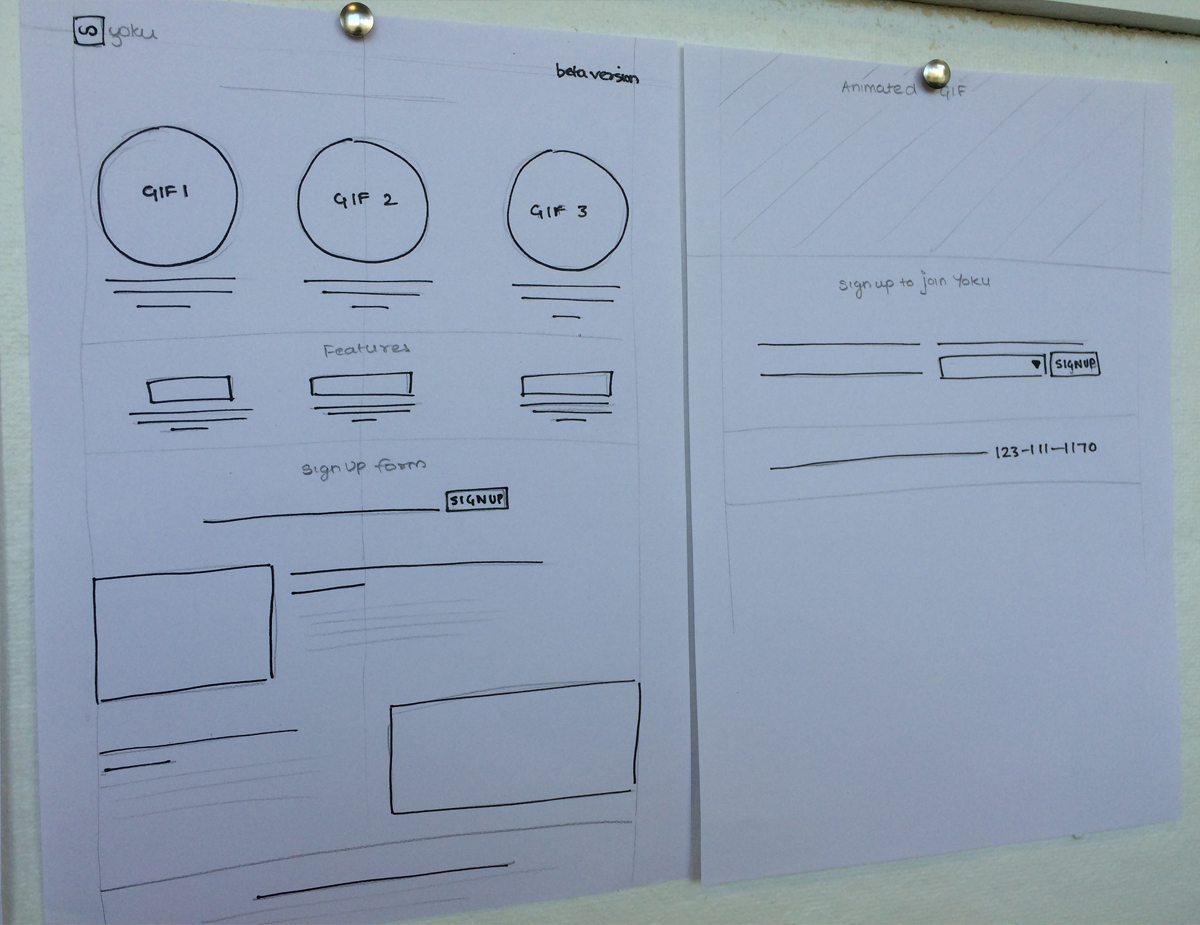 S yoku
beta version
GIF 1
GIF 2
GIF 3
Features
sign up form
SIGNUP
Animated GIF
sign up to join Yoku
SIGNUP
123-111-1170